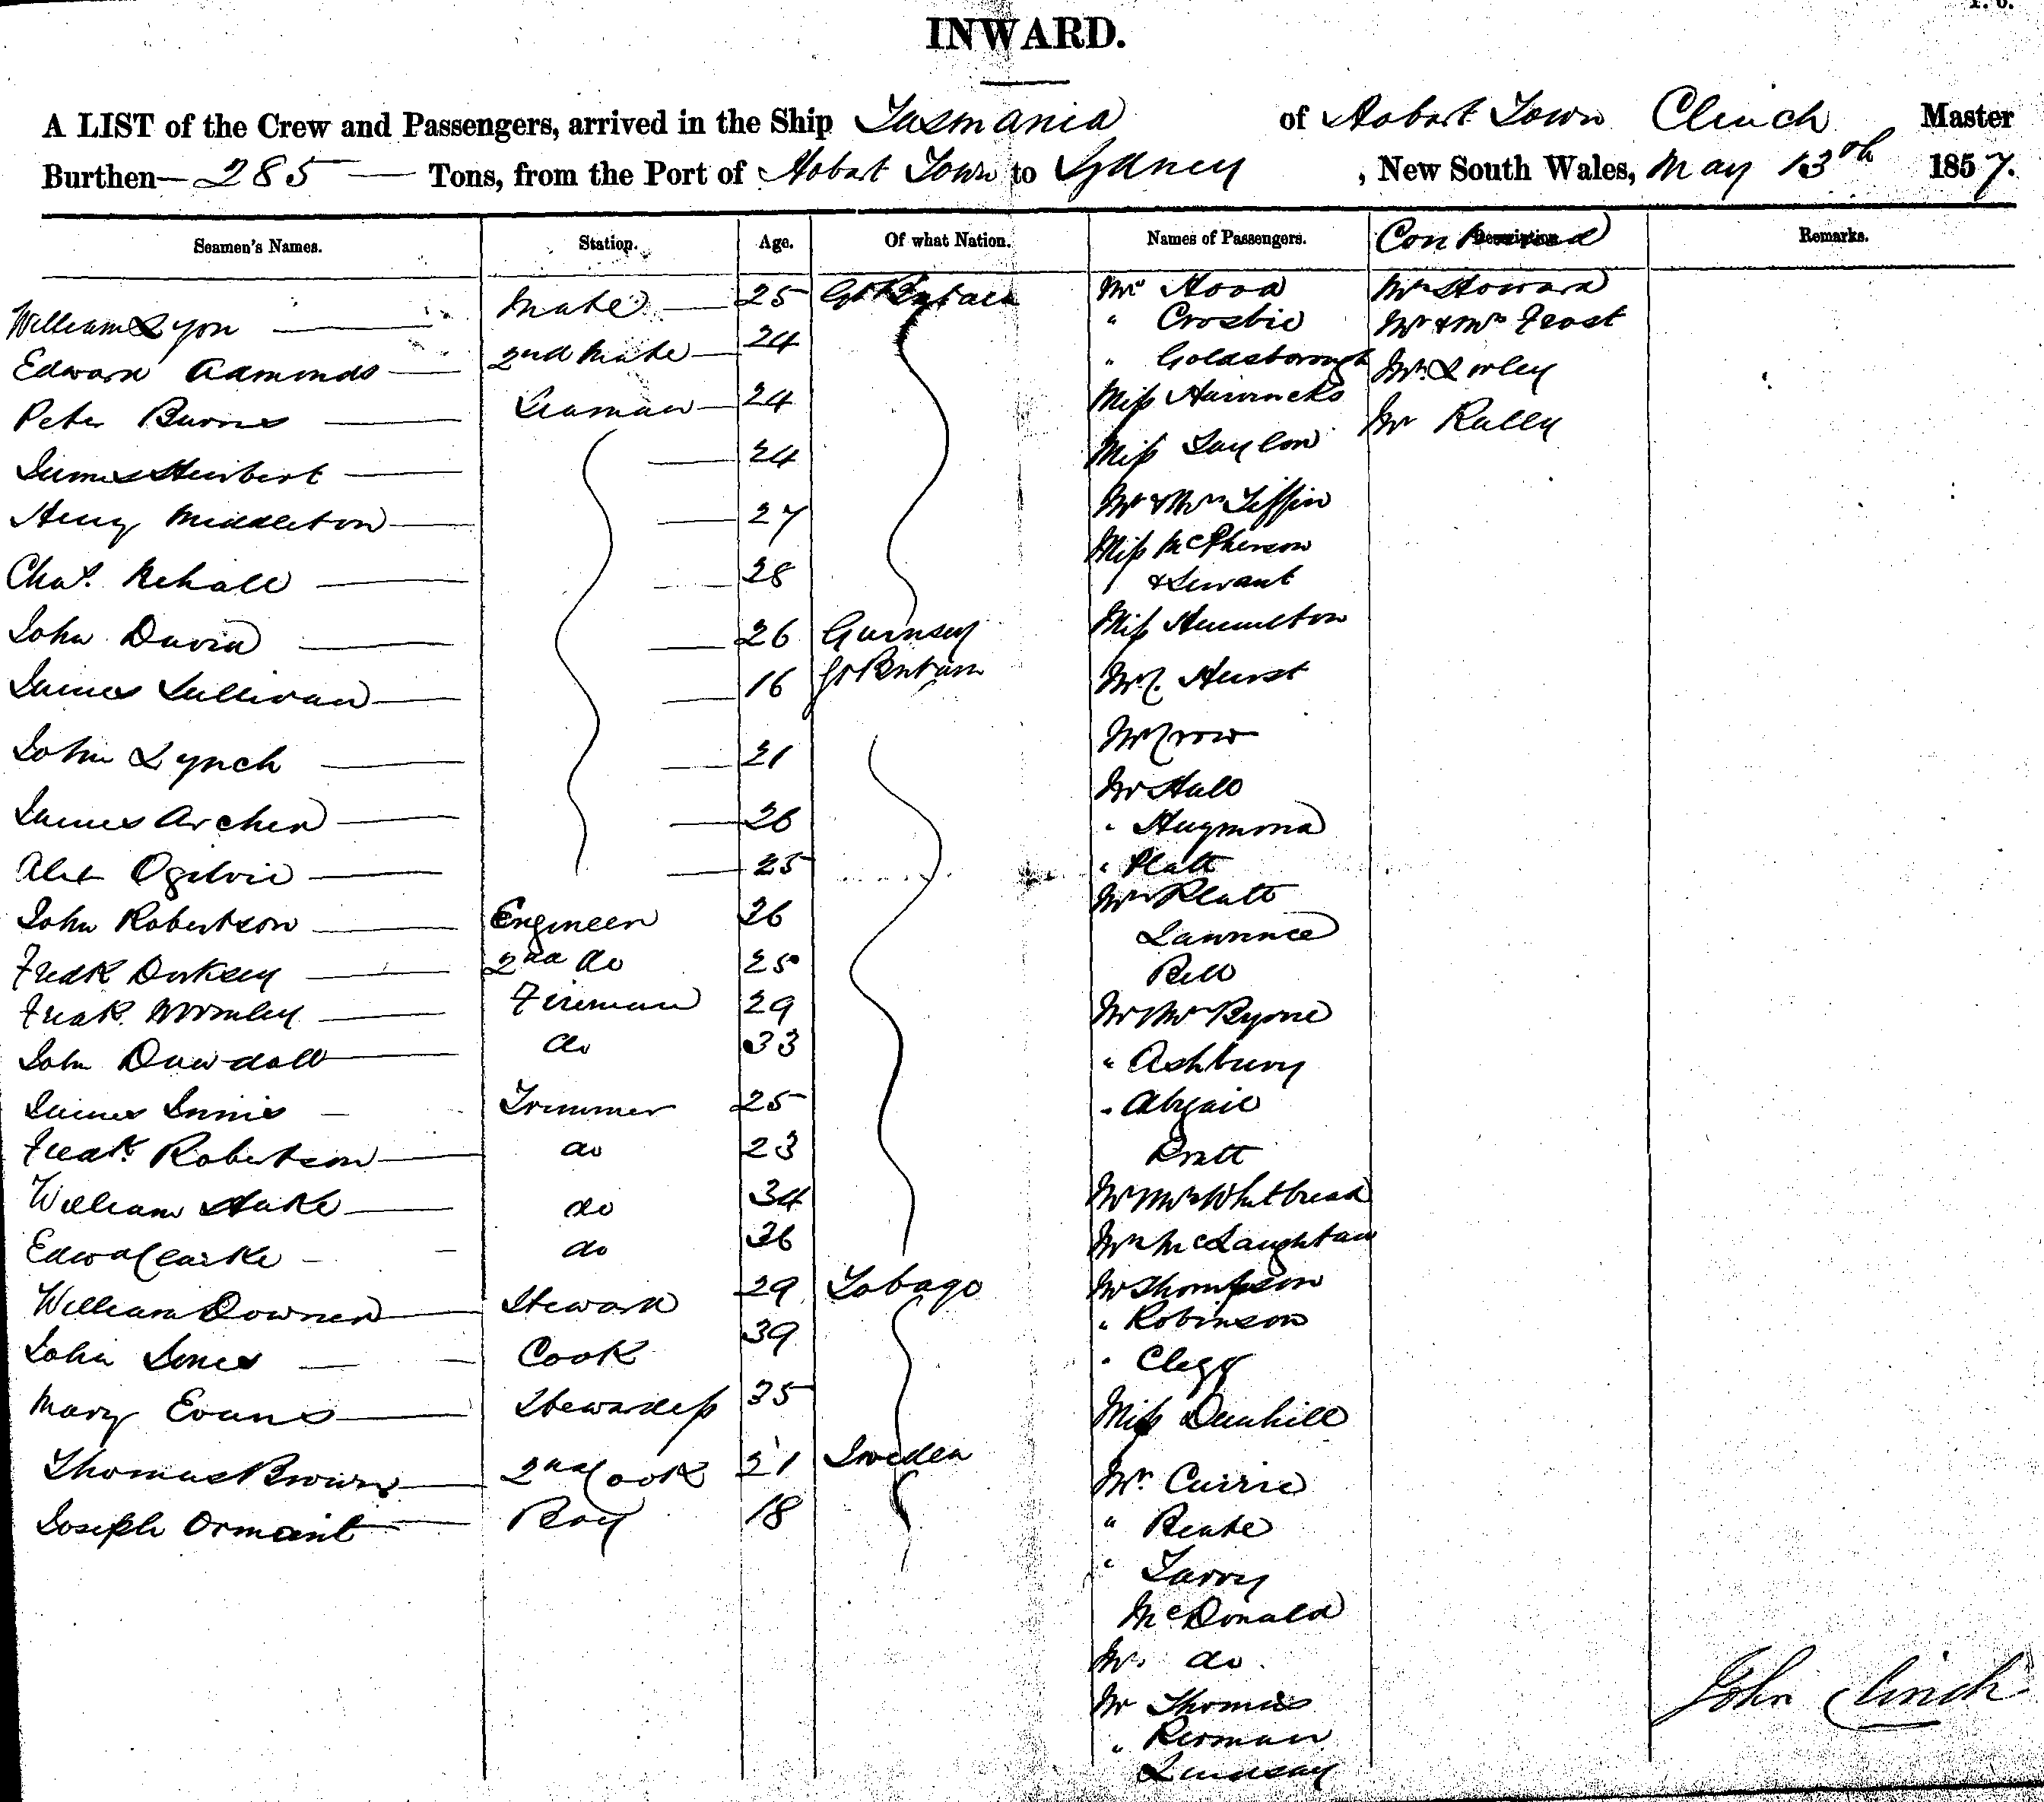 INWARD.
A LIST of the Crew and Passengers, arrived in the Ship Tasmania of Hobart Town Clinch Master
Burthen 285 Tons, from the Port of Hobart Town to Sydney, New South Wales, May 13th 1857.
Seamen's Names. Station. Age. Of what Nation. Names of Passengers. Continued Remarks.
William Lyon Mate 25 Gt Britain Mr Hood Mrs Howard
Edward Admonds 2nd Mate 24 " Crosbie Mr & Mrs Frost
Peter Burns Seaman 24 " Goldsborough
Miss Mr Rally
James 24 Miss Taylor
Henry Middleton 27 Mr & Mrs Tiffin
Chas. 28 Miss McPherson
& Servant
John David 26 Guernsey Miss Hamilton
James Sullivan 16 Gt Britain Hurst
John Lynch 21 Mr Crow
James Archer 26 Mr Hall
" Haymond
Alex Ogilvie 25 " Platt
John Robertson Engineer 26 Mrs Platt
Lawrence
Fredk 2nd do 25 Bell
Fredk Fireman 29 Mr Mrs Byrne
John Dowdall do 33 " Ashbury
James Innis Trimmer 25 " Abigail
Fredk. Robertson do 23 Pratt
William Hake do 34 Mr Mrs Whitbread
Edwd Clarke do 36 Mrs McLaughtan
William Downer Steward 29 Tobago Mr Thompson
" Robinson
John Jones Cook 39 " Clegg
Mary Evans Stewardess 35 Miss Dunhill
Thomas Brown 2nd Cook 21 Sweden Mr. Currie
Joseph Ormant Boy 18 " Beate
" Tarry
McDonald
Mr. do.
Mr Thomas
John Clinch
"
Lindsay